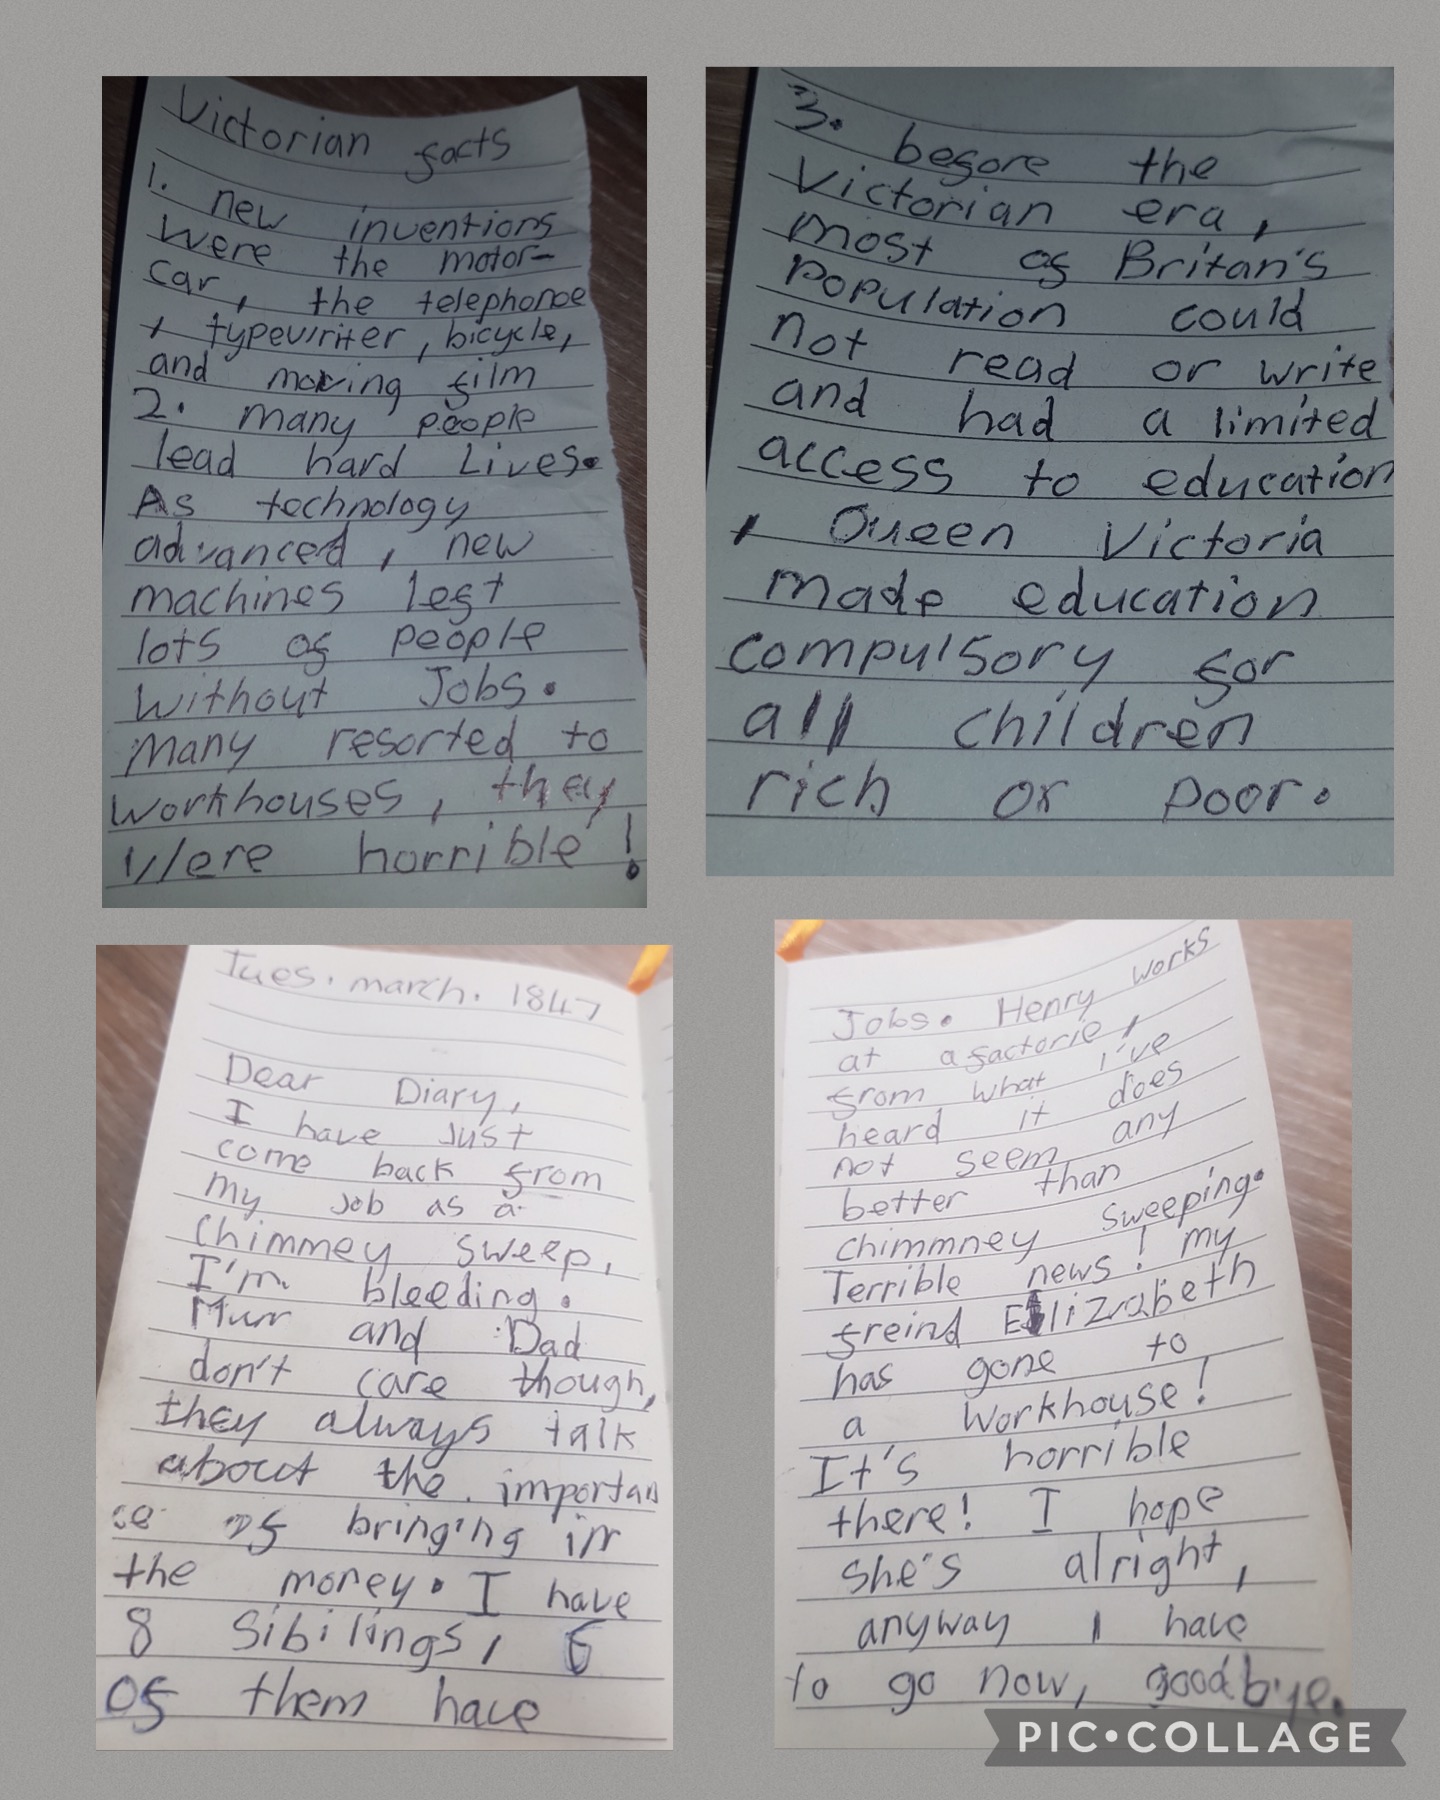 Victorian facts
1. new inventions
Were the motor-
car, the telephonoe
, typewriter, bicycle,
and moving film
2. many people
lead hard Lives.
As technology
advanced, new
machines left
lots of people
without Jobs.
Many resorted to
workhouses, they
Were horrible!
3. before the
Victorian era,
most of Britan's
population could
not read or write
and had a limited
access to education
, Queen Victoria
made education
compulsory for
all children
rich or poor.
Tues. march. 1847
Dear Diary,
I have Just
come back from
my Job as a
Chimmey sweep,
I'm bleeding.
Mum and Dad
don't care though,
they always talk
about the importan
ce of bringing in
the money. I have
8 Sibilings, 6
of them have
Jobs. Henry works
at a factorie,
from what I've
heard it does
not seem any
better than
chimmney sweeping.
Terrible news! my
freind Elizabeth
has gone to
a Workhouse!
It's horrible
there! I hope
she's alright,
anyway I have
to go now, goodbye.
PIC•COLLAGE